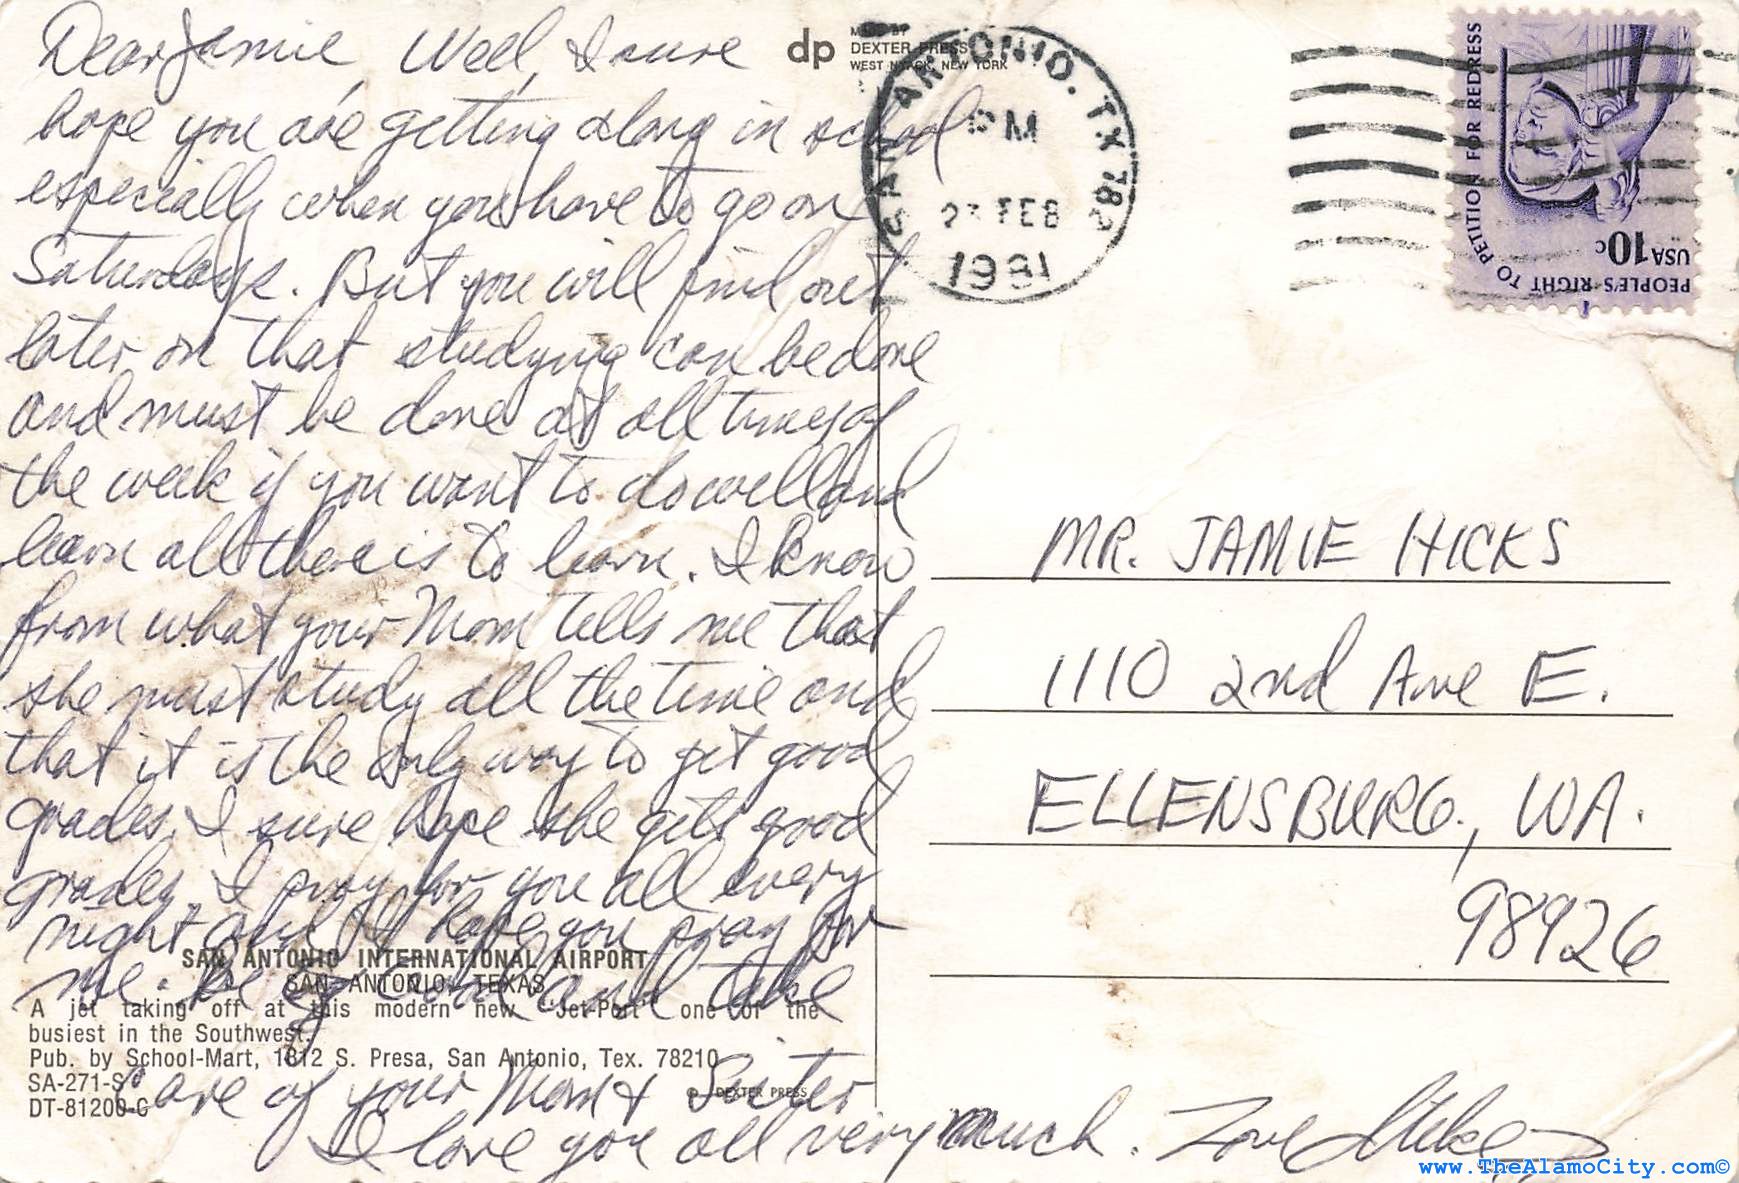 Dear Jamie, Well, I sure
hope you are getting along in school
especially when you have to go on
Saturdays. But you will find out
later on that studying can be done
and must be done at all times of
the week if you want to do well and
learn all there is to learn. I know
from what your Mom tells me that
she must study all the time and
that it is the only way to get good
grades. I sure hope she gets good
grades. I pray for you all every
night and I hope you pray for
me. Be good and take
care of your Mom & Sister
I love you all very much. Love Mike
SAN ANTONIO INTERNATIONAL AIRPORT
SAN ANTONIO, TEXAS
A jet taking off at this modern new "Jet-Port" one of the
busiest in the Southwest.
Pub. by School-Mart, 1812 S. Presa, San Antonio, Tex. 78210
SA-271-S
DT-81200-C
© DEXTER PRESS
dp
MADE BY
DEXTER PRESS
WEST NYACK, NEW YORK
SAN ANTONIO, TX 782
PM
FEB
1981
PEOPLE'S RIGHT TO PETITION FOR REDRESS
USA 10c
MR. JAMIE HICKS
1110 2nd Ave E.
ELLENSBURG, WA.
98926
www.TheAlamoCity.com©